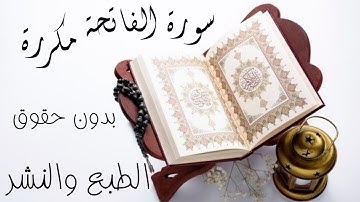 سورة الفاتحة مكررة
بدون حقوق
الطبع والنشر